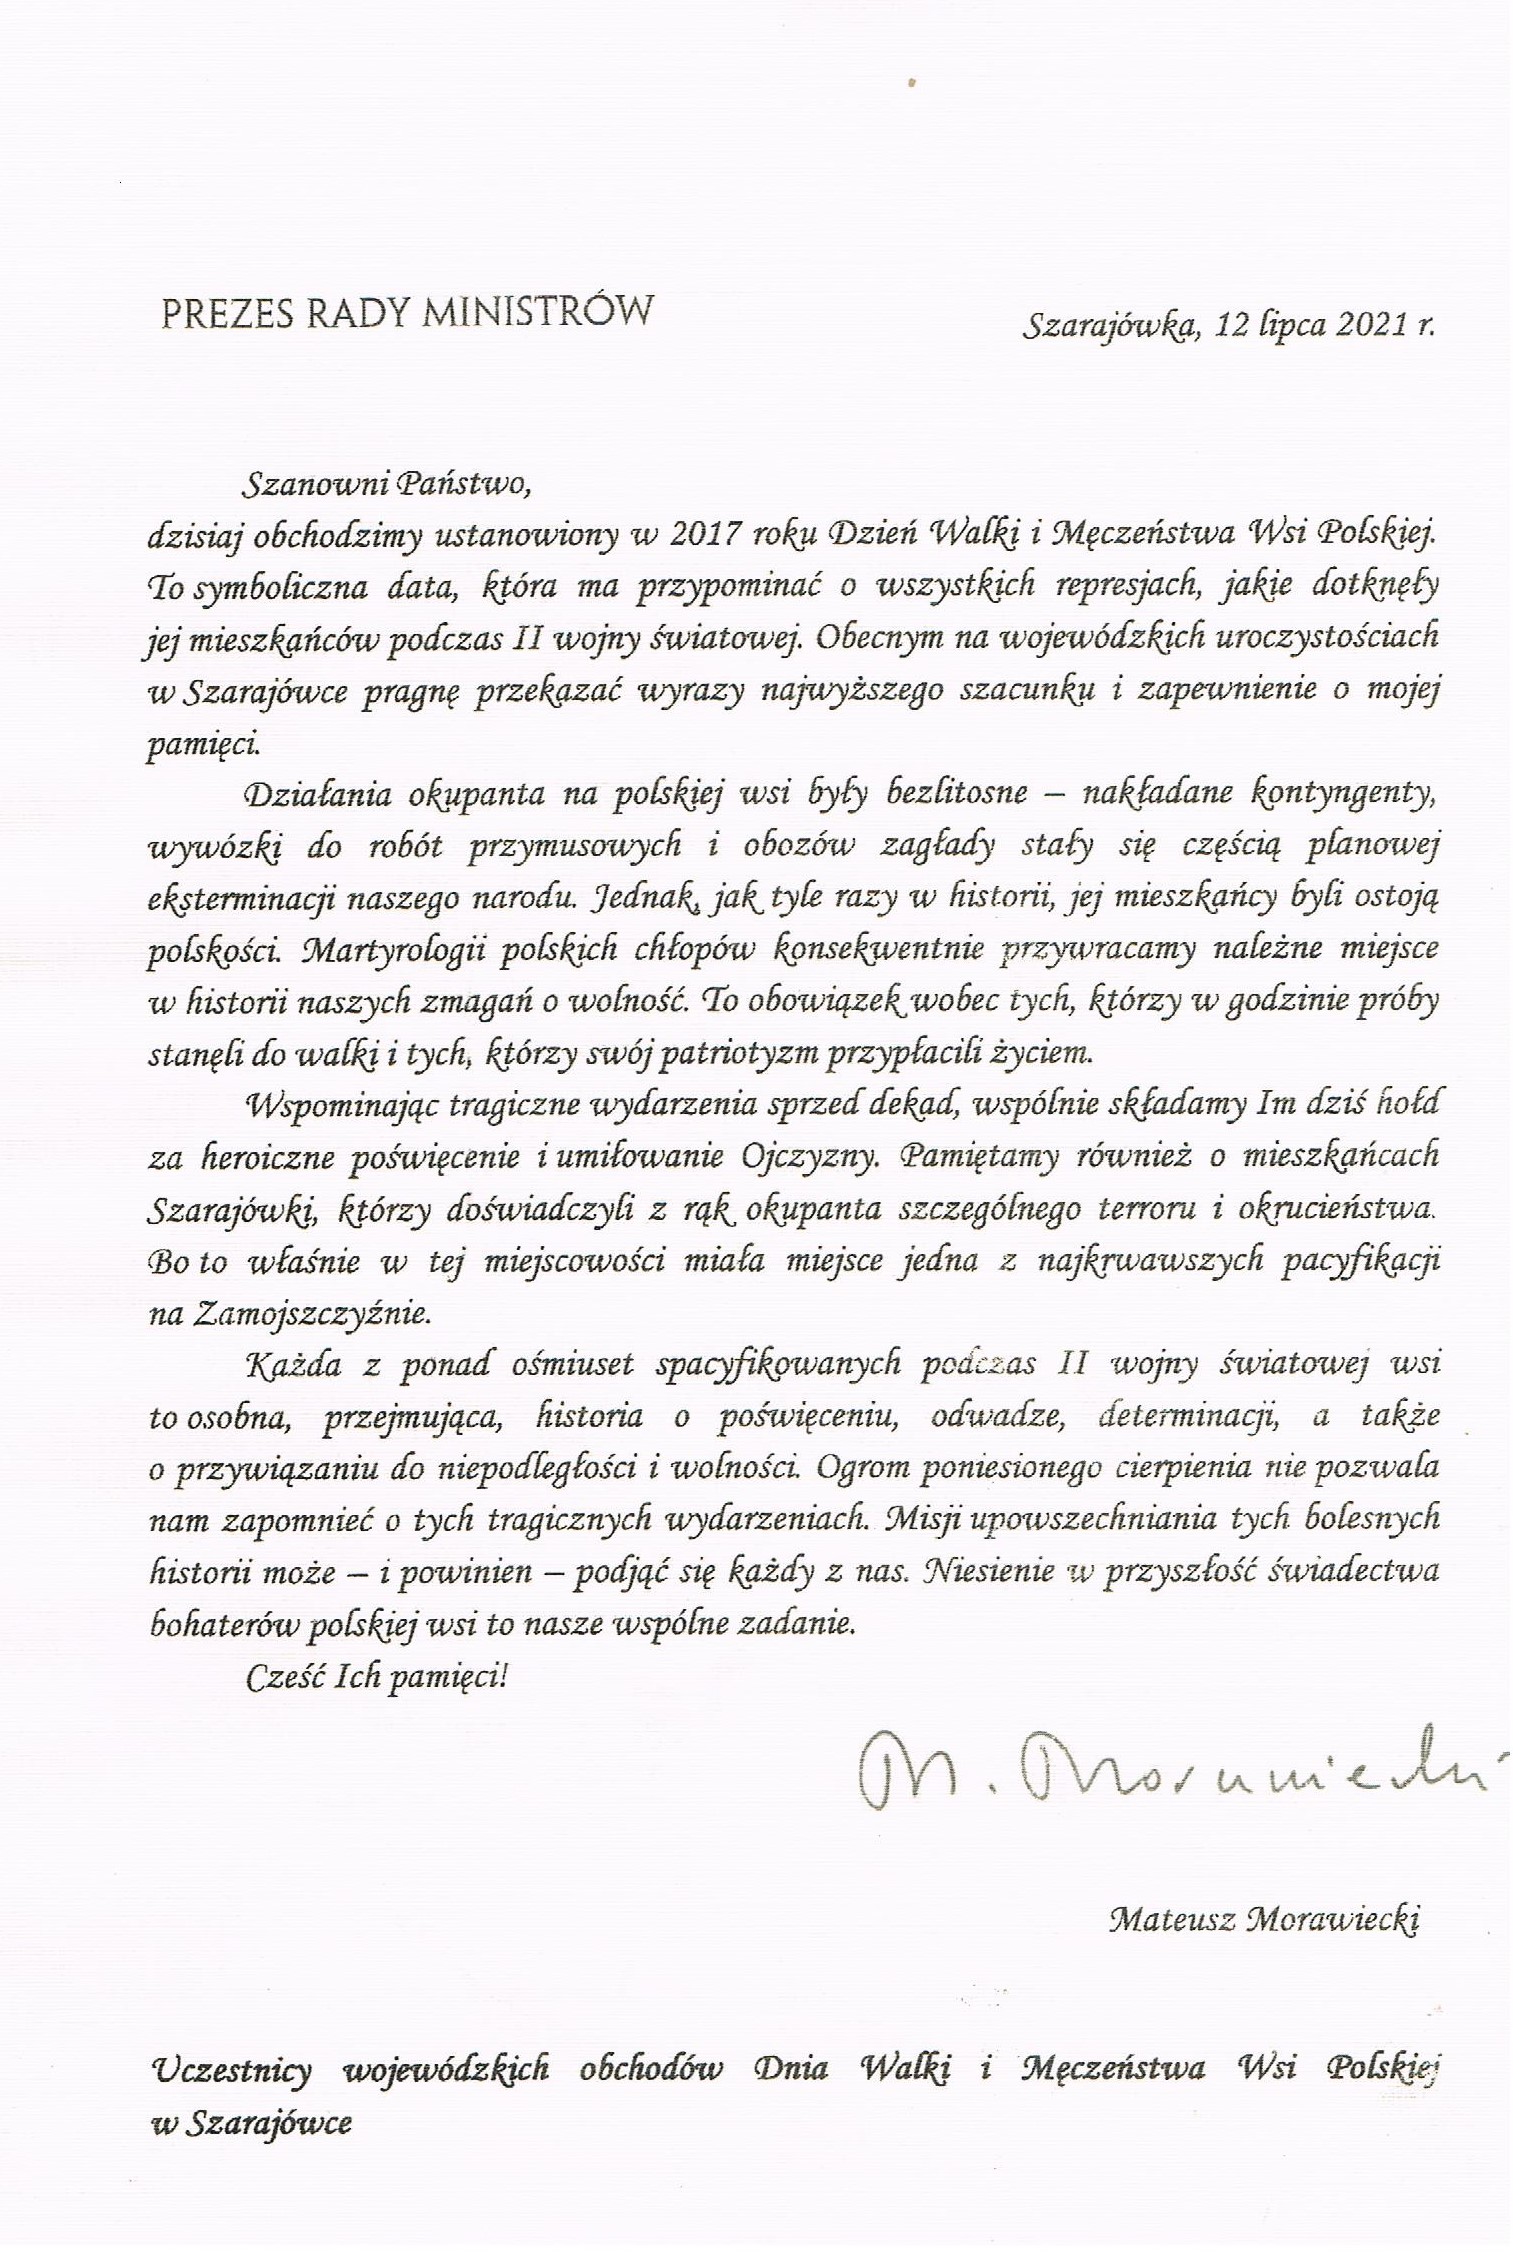 PREZES RADY MINISTRÓW
Szarajówka, 12 lipca 2021 r.
Szanowni Państwo,
dzisiaj obchodzimy ustanowiony w 2017 roku Dzień Walki i Męczeństwa Wsi Polskiej.
To symboliczna data, która ma przypominać o wszystkich represjach, jakie dotknęły
jej mieszkańców podczas II wojny światowej. Obecnym na wojewódzkich uroczystościach
w Szarajówce pragnę przekazać wyrazy najwyższego szacunku i zapewnienie o mojej
pamięci.
Działania okupanta na polskiej wsi były bezlitosne – nakładane kontyngenty,
wywózki do robót przymusowych i obozów zagłady stały się częścią planowej
eksterminacji naszego narodu. Jednak, jak tyle razy w historii, jej mieszkańcy byli ostoją
polskości. Martyrologii polskich chłopów konsekwentnie przywracamy należne miejsce
w historii naszych zmagań o wolność. To obowiązek wobec tych, którzy w godzinie próby
stanęli do walki i tych, którzy swój patriotyzm przypłacili życiem.
Wspominając tragiczne wydarzenia sprzed dekad, wspólnie składamy Im dziś hołd
za heroiczne poświęcenie i umiłowanie Ojczyzny. Pamiętamy również o mieszkańcach
Szarajówki, którzy doświadczyli z rąk okupanta szczególnego terroru i okrucieństwa.
Bo to właśnie w tej miejscowości miała miejsce jedna z najkrwawszych pacyfikacji
na Zamojszczyźnie.
Każda z ponad ośmiuset spacyfikowanych podczas II wojny światowej wsi
to osobna, przejmująca, historia o poświęceniu, odwadze, determinacji, a także
o przywiązaniu do niepodległości i wolności. Ogrom poniesionego cierpienia nie pozwala
nam zapomnieć o tych tragicznych wydarzeniach. Misji upowszechniania tych bolesnych
historii może – i powinien – podjąć się każdy z nas. Niesienie w przyszłość świadectwa
bohaterów polskiej wsi to nasze wspólne zadanie.
Cześć Ich pamięci!
M. Morawiecki
Mateusz Morawiecki
Uczestnicy wojewódzkich obchodów Dnia Walki i Męczeństwa Wsi Polskiej
w Szarajówce